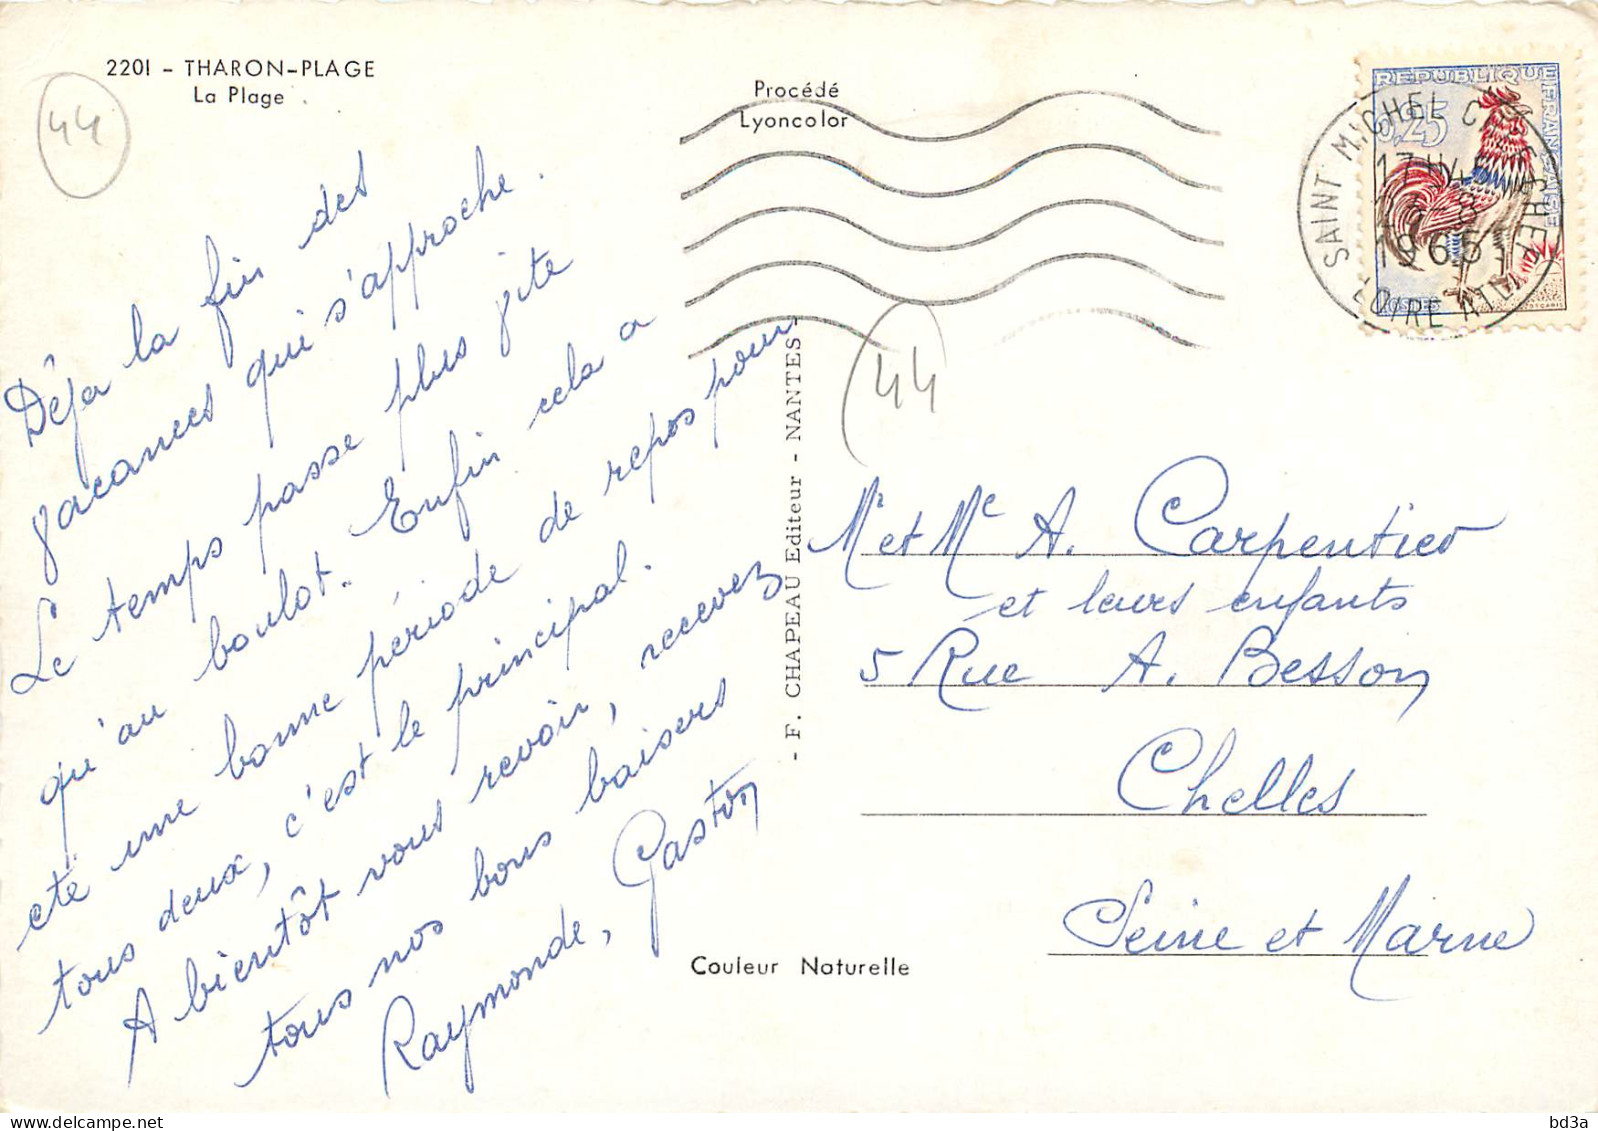 2201 - THARON-PLAGE
La Plage
44
Procédé
Lyoncolor
REPUBLIQUE FRANÇAISE
0,25
POSTES
SAINT MICHEL CHEF CHEF
17 H45
1965
LOIRE ATLQUE
Déja la fin des
vacances qui s'approche.
Le temps passe plus vite
qu'au boulot. Enfin cela a
été une bonne période de repos pour
tous deux, c'est le principal.
A bientôt vous revoir, recevez
tous nos bons baisers
Raymonde, Gaston
- F. CHAPEAU Editeur - NANTES -
44
Mr et Me A. Carpentier
et leurs enfants
5 Rue A. Besson
Chelles
Seine et Marne
Couleur Naturelle
bd3a